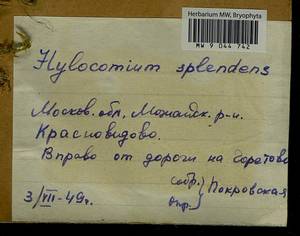 Herbarium MW, Bryophyta
MW 9 044 742
Hylocomium splendens
Москов. обл. Можайск. р-н.
Красновидово.
Вправо от дороги на Горетово
собр. } Покровская
опр.
3/VII-49г.